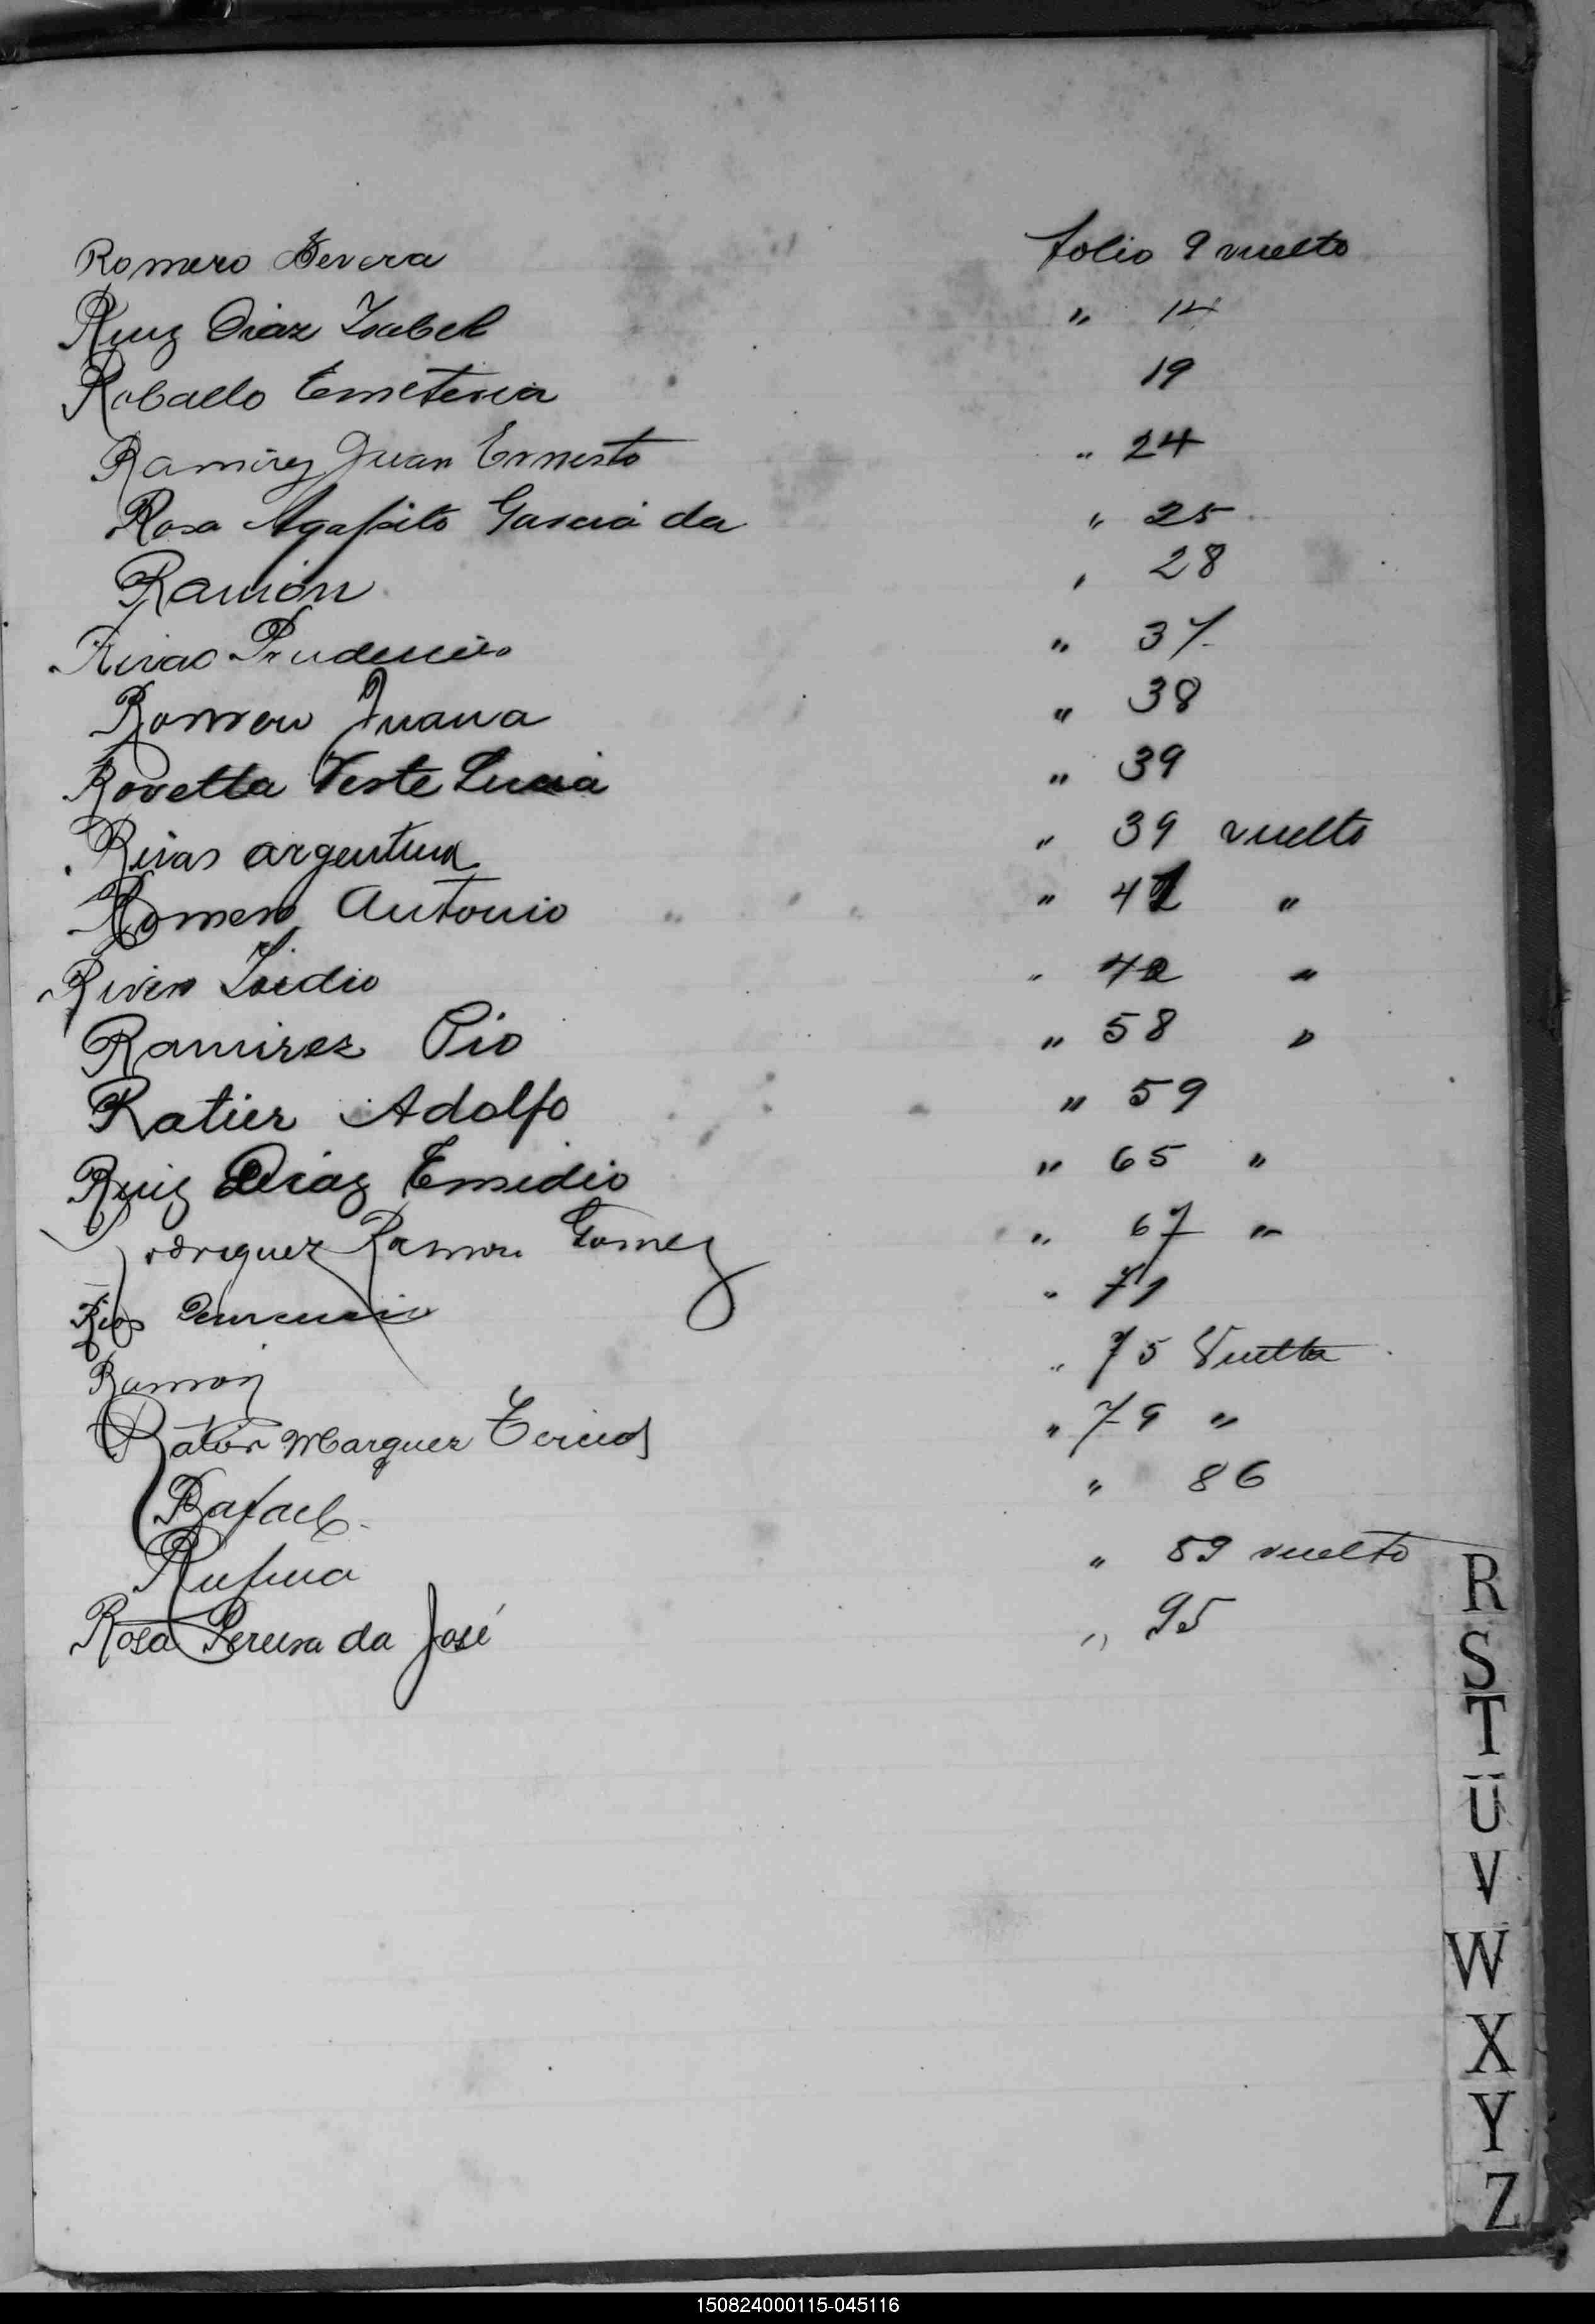 Romero Severa folio 9 vuelto
Ruiz Diaz Isabel " 14
Roballo Emeteria 19
Ramirez Juan Ernesto " 24
Rosa Agapito Garcia da " 25
Ramón " 28
Rivas Prudencio " 37
Romero Juana " 38
Rovetta Veste Lucia " 39
Rivas argentina " 39 vuelto
Romero Antonio " 41 "
Rivero Isidio " 42 "
Ramirez Pio " 58 "
Ratier Adolfo " 59
Ruiz Diaz Emidio " 65 "
Rodriguez Ramon Gomez " 67 "
Rios " 71
Ramón " 75 Vuelta
Marquez " 79 "
Rafael " 86
Rufina " 89 vuelto
Rosa Pereira da José " 95
R
S
T
U
V
W
X
Y
Z
150824000115-045116